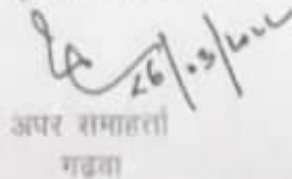 26/03/2022
अपर समाहर्ता
गढ़वा